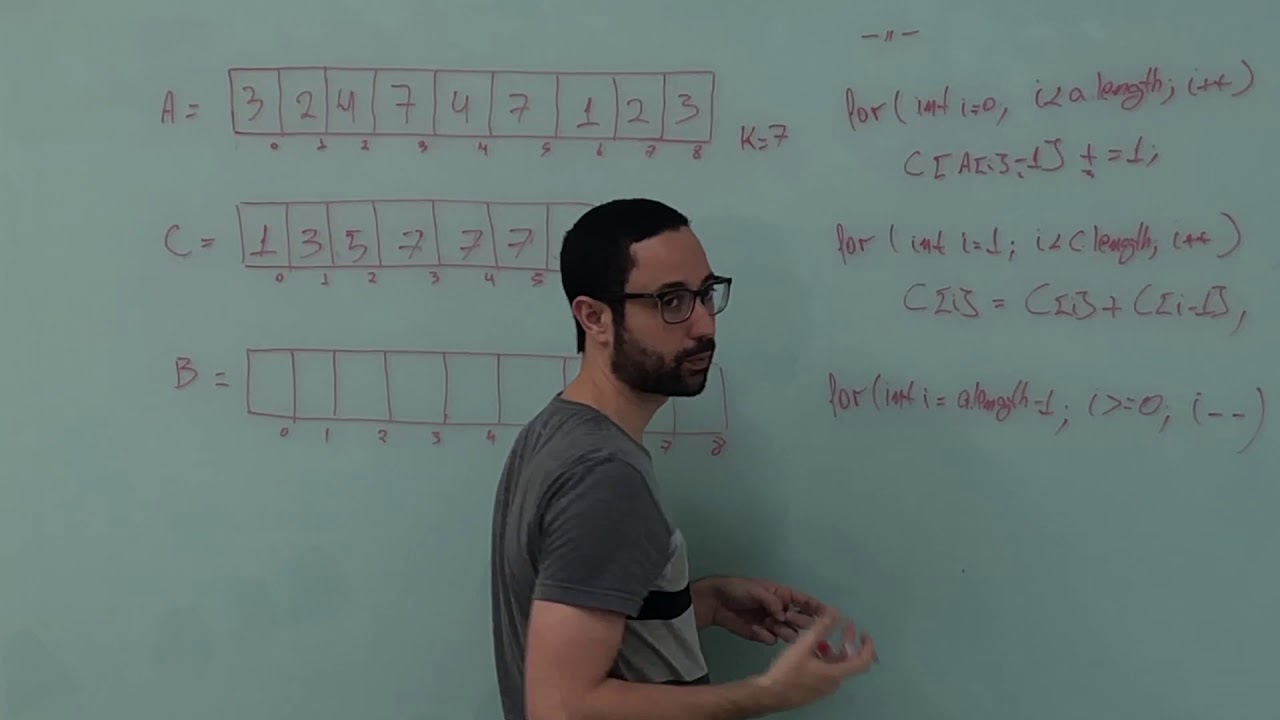 A = 3 2 4 7 4 7 1 2 3
0 1 2 3 4 5 6 7 8
K=7
C = 1 3 5 7 7 7
0 1 2 3 4 5
B =
0 1 2 3 4 7 8
— 〃 —
for( int i=0, i<a length; i++)
C[A[i]-1] += 1;
for ( int i=1; i<C length; i++ )
C[i] = C[i] + C[i-1],
for(int i = a.length-1; i>=0; i--)